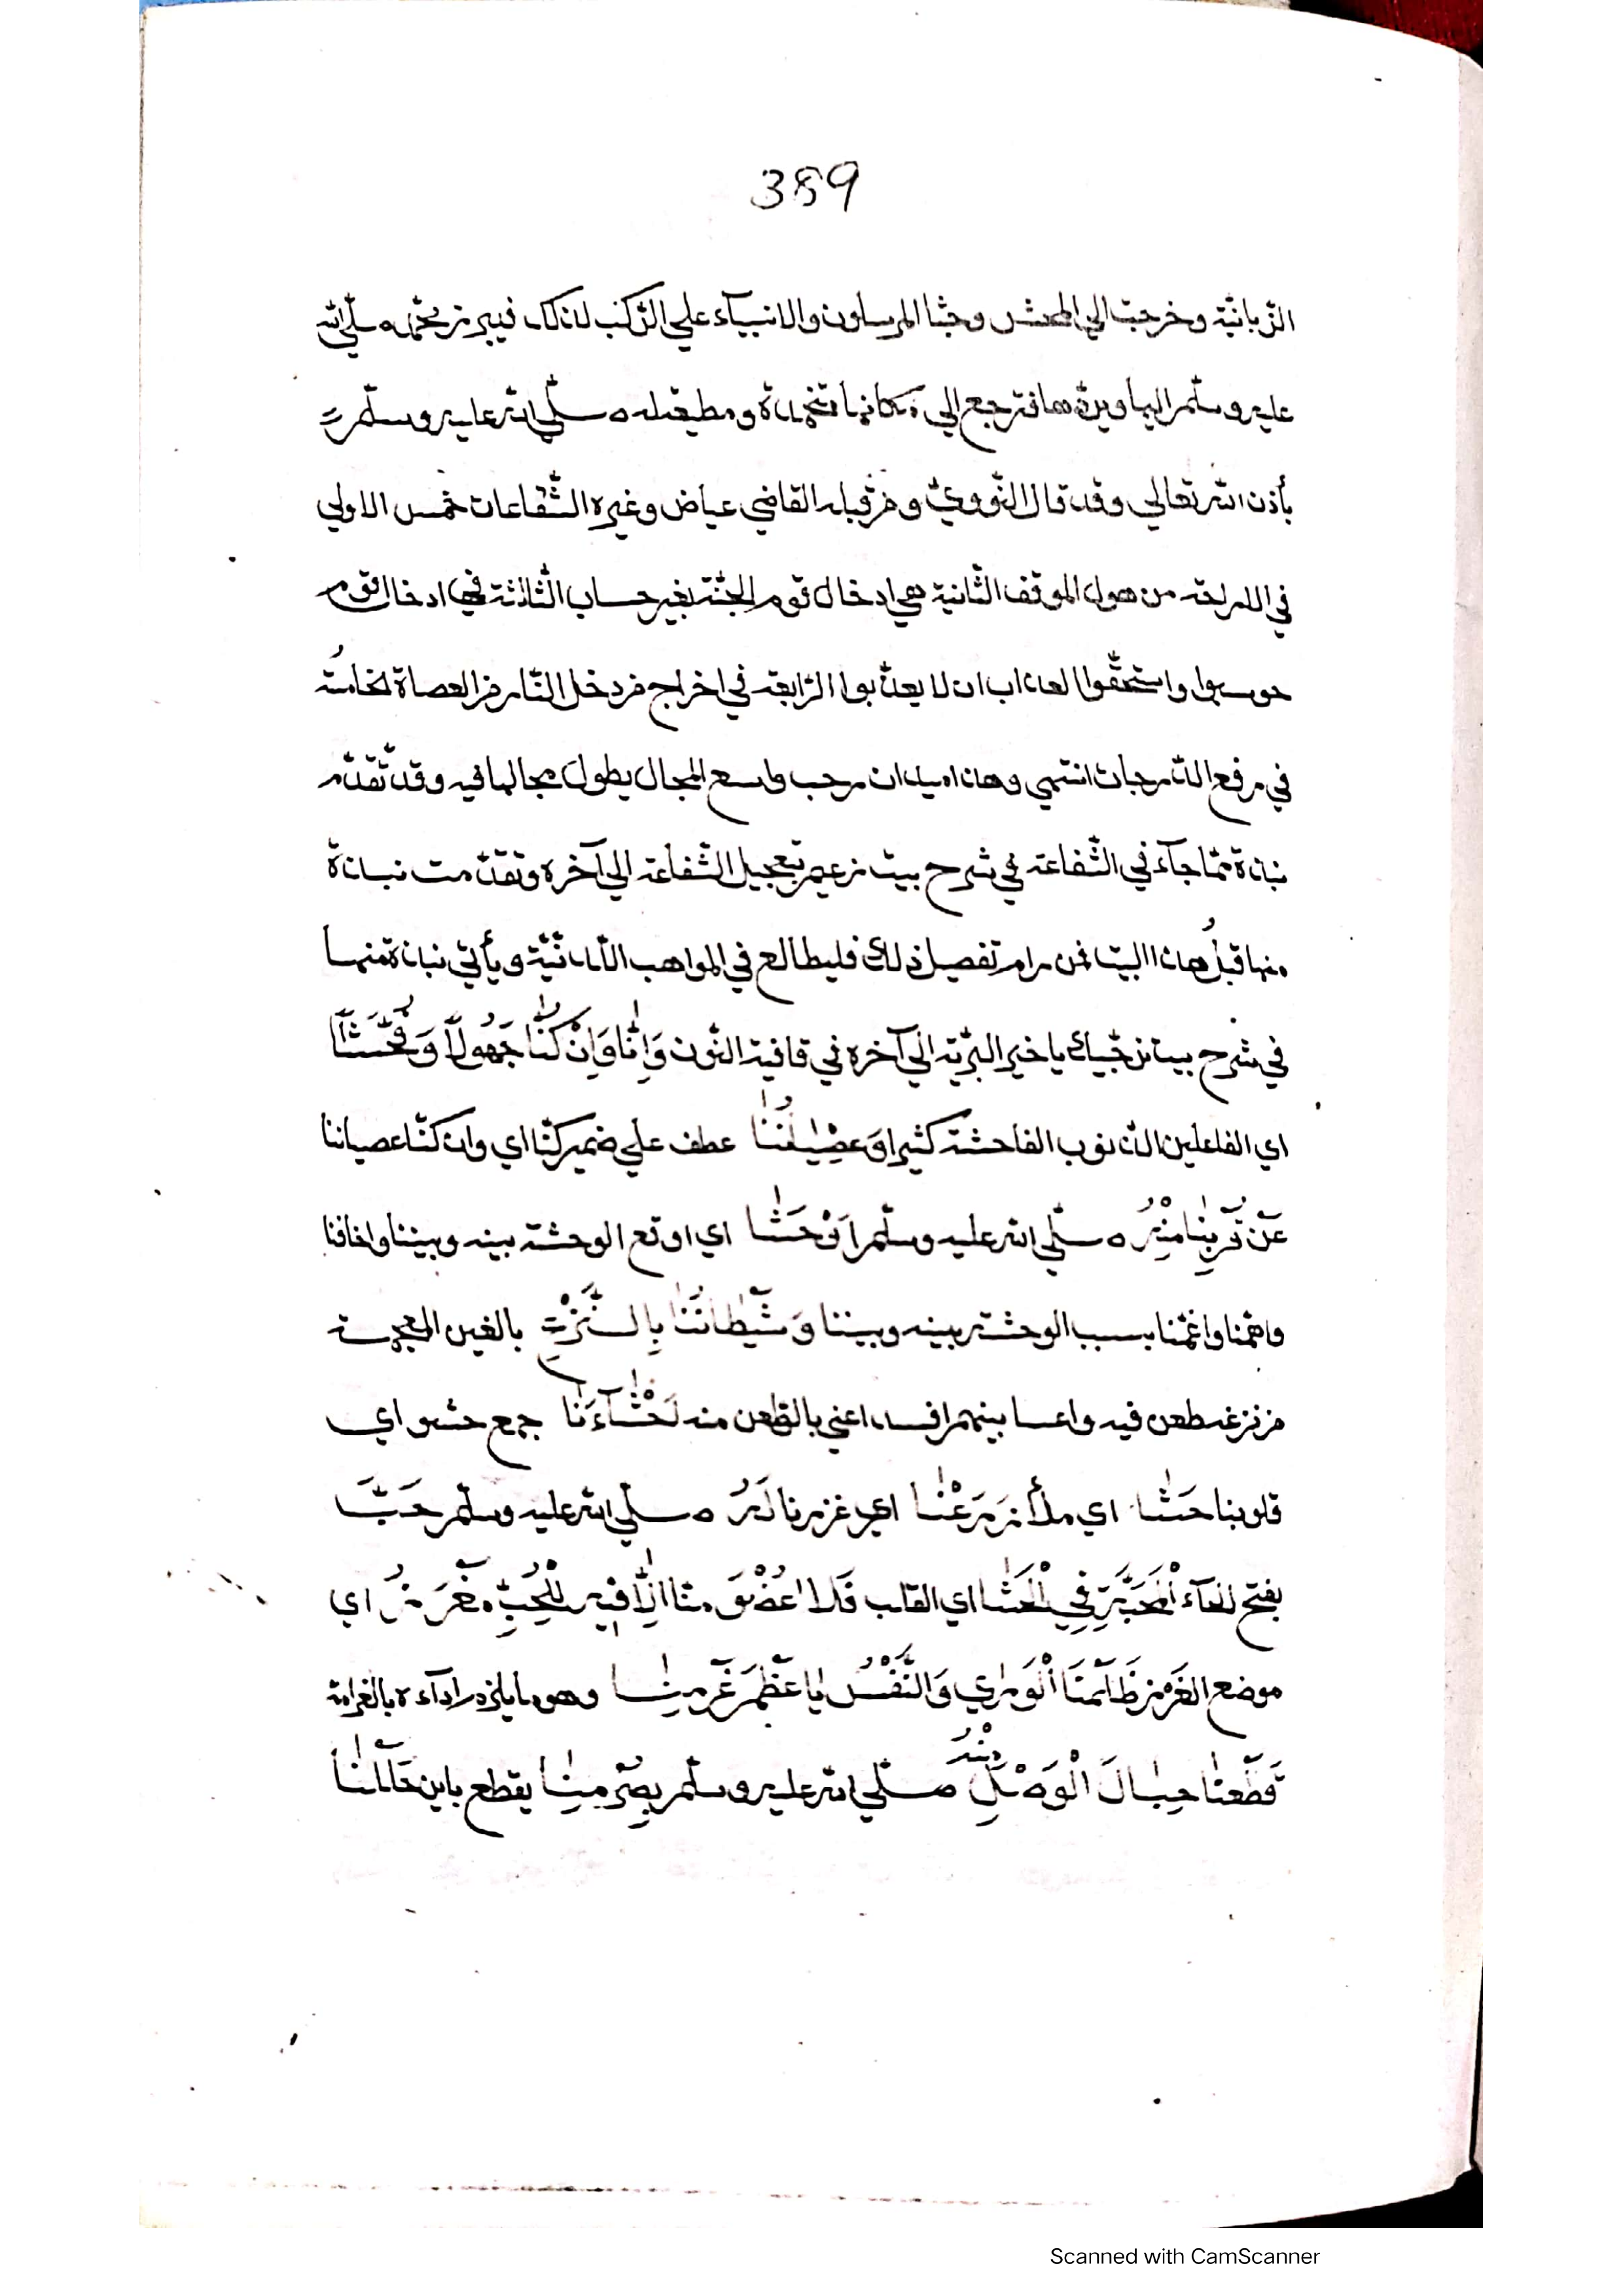 389
الزّبانيّة وخرجت الي المحشر وجثا المرسلون والانبيآء علي الرّكب لذلك فيبرز محمّد صلّي الله
عليه وسلّم اليها ويردّها فترجع الي مكانها متخمّدة ومطيعة له صلّي الله عليه وسلّم
بأذن الله تعالي وقد قال النّوويّ ومن قبله القاضي عياض وغيره الشّفاعات خمس الاولي
في الاراحة من هول الموقف الثّانية هي ادخال قوم الجنّة بغير حساب الثّالثة في ادخال قوم
حوسبوا واستحقّوا العذاب ان لا يعذّبوا الرّابعة في اخراج من دخل النّار من العصاة الخامسة
في رفع الدّرجات انتهي وهذا ميدان رحب واسع المجال يطول مجالها فيه وقد تقدّم
نبذة ممّا جآء في الشّفاعة في شرح بيت زعيم بتعجيل الشّفاعة الي آخره وتقدّمت نبذة
منها قبل هذا البيت فمن رام تفصيل ذلك فليطالع في المواهب اللّدنّيّة ويأتي نبذة منها
في شرح بيت نرجّيك يا خير البريّة الي آخره في قافية النّون وَاِنَّا وَاِنْ كُنَّا جَهُولًا وَفُحَّشَا
اي الفاعلين الذّنوب الفاحشة كثيرا وَعِصْيَانُنَا عطف علي ضمير كنّا اي وان كنّا عصياننا
عَنْ قُرْبِنَا مِنْهُ صلّي الله عليه وسلّم اَوْحَشَا اي اوقع الوحشة بينه وبيننا واخافنا
واهمّنا واغمّنا بسبب الوحشة بينه وبيننا وَشَيْطَانُنَا بِالنَّزْغِ بالغين المعجمة
من نزغ طعن فيه بينهم افسد اعني بالطّعن منه اَحْشَآءَنَا جمع حشو اي
قلوبنا حَشَا اي ملأ زَرَعْنَا اي غرزنا لَهُ صلّي الله عليه وسلّم حَبَّ
بفتح الحآء الْمَحَبَّةِ فِي الْحَشَا اي القلب فَلَا عُضْوَ مِنَّا اِلَّا فِيهِ لِلْحُبِّ مَغْرَسُ اي
موضع الغرس ظَلَمْنَا الْوَرٰي وَالنَّفْسَ يَا عُظْمَ غُرْمِنَا وهو ما يلزم اداءه بالغرامة
قَطَعْنَا حِبَالَ الْوَصْلِ مِنْهُ صلّي الله عليه وسلّم بِصُرْمِنَا يقطع